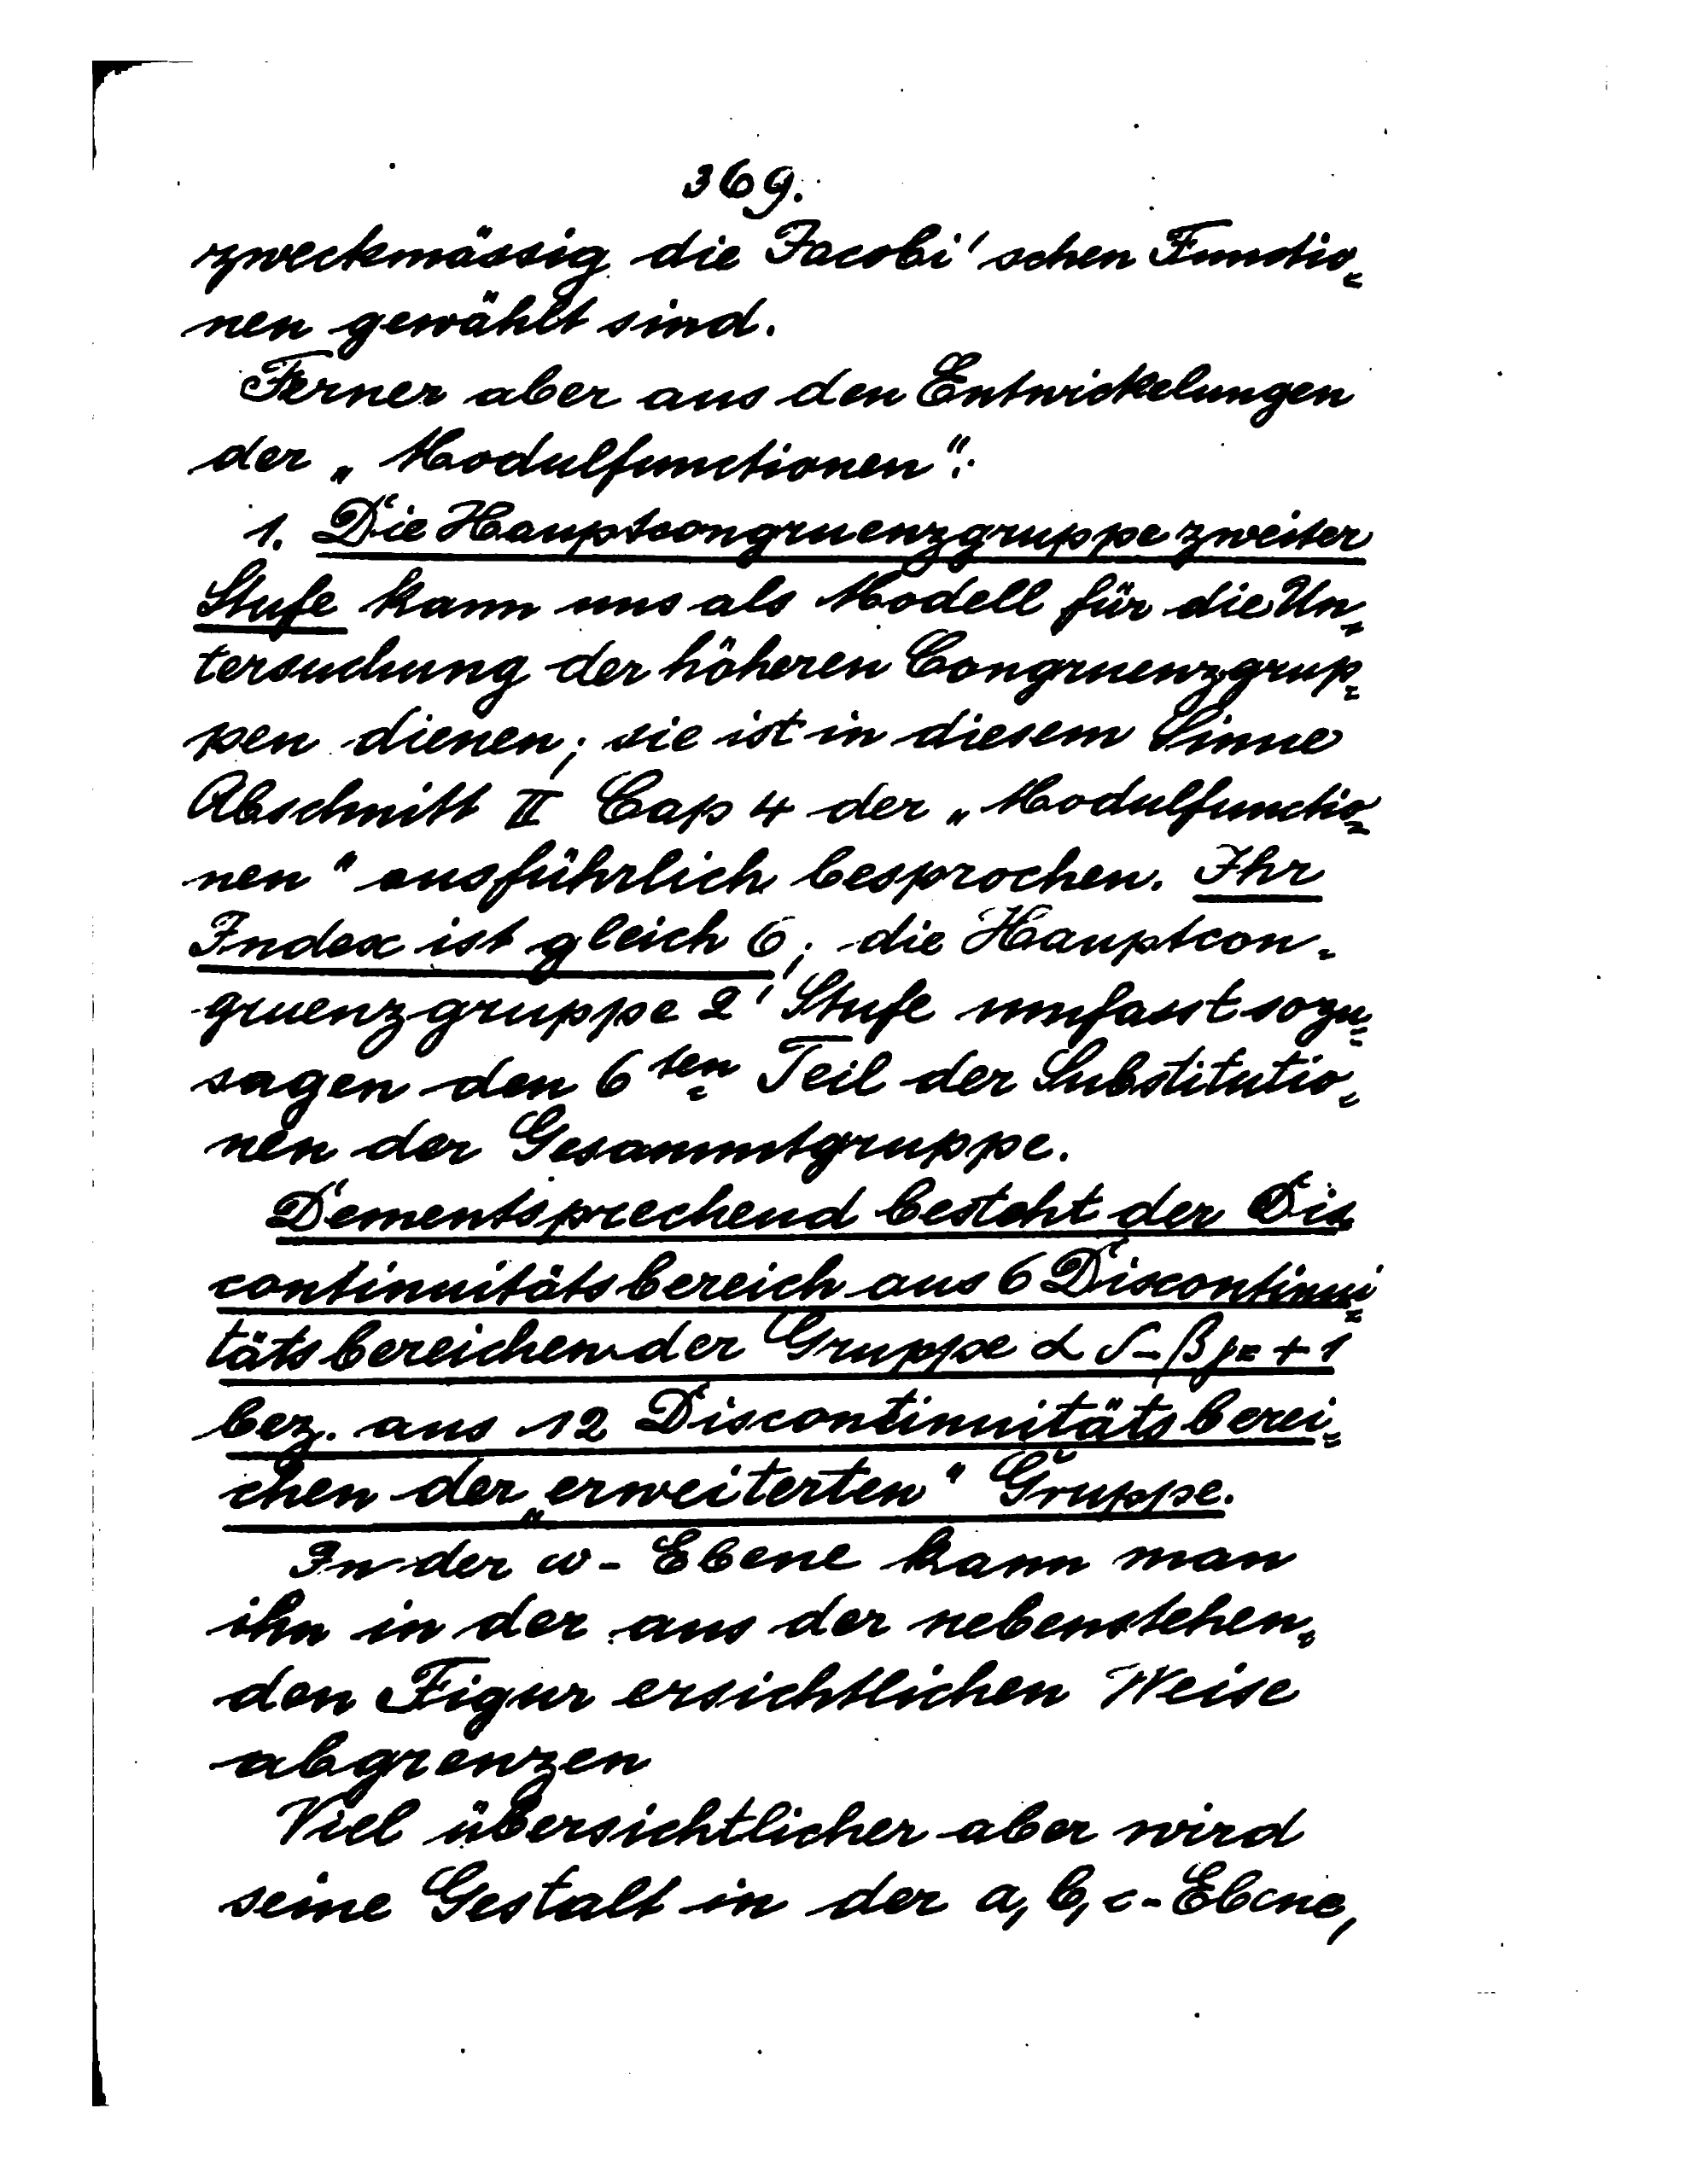 369.
zweckmässig die Jacobi'schen Functio=
nen gewählt sind.
Ferner aber aus den Entwickelungen
der „Modulfunctionen“:
1. Die Hauptcongruenzgruppe zweiter
Stufe kann uns als Modell für die Un=
tersuchung der höheren Congruenzgrup=
pen dienen; sie ist in diesem Sinne
Abschnitt II Cap 4 der „Modulfunctio=
nen“ ausführlich besprochen. Ihr
Index ist gleich 6; die Hauptcon=
gruenzgruppe 2' Stufe umfasst sozu=
sagen den 6ten Teil der Substitutio=
nen der Gesammtgruppe.
Dementsprechend besteht der Dis=
continuitätsbereich aus 6 Discontinui=
tätsbereichen der Gruppe αδ-βγ=+1
bez. aus 12 Discontinuitätsberei=
chen der „erweiterten“ Gruppe.
In der ω-Ebene kann man
ihn in der aus der nebenstehen=
den Figur ersichtlichen Weise
abgrenzen
Viel übersichtlicher aber wird
seine Gestalt in der a, b, c-Ebene,